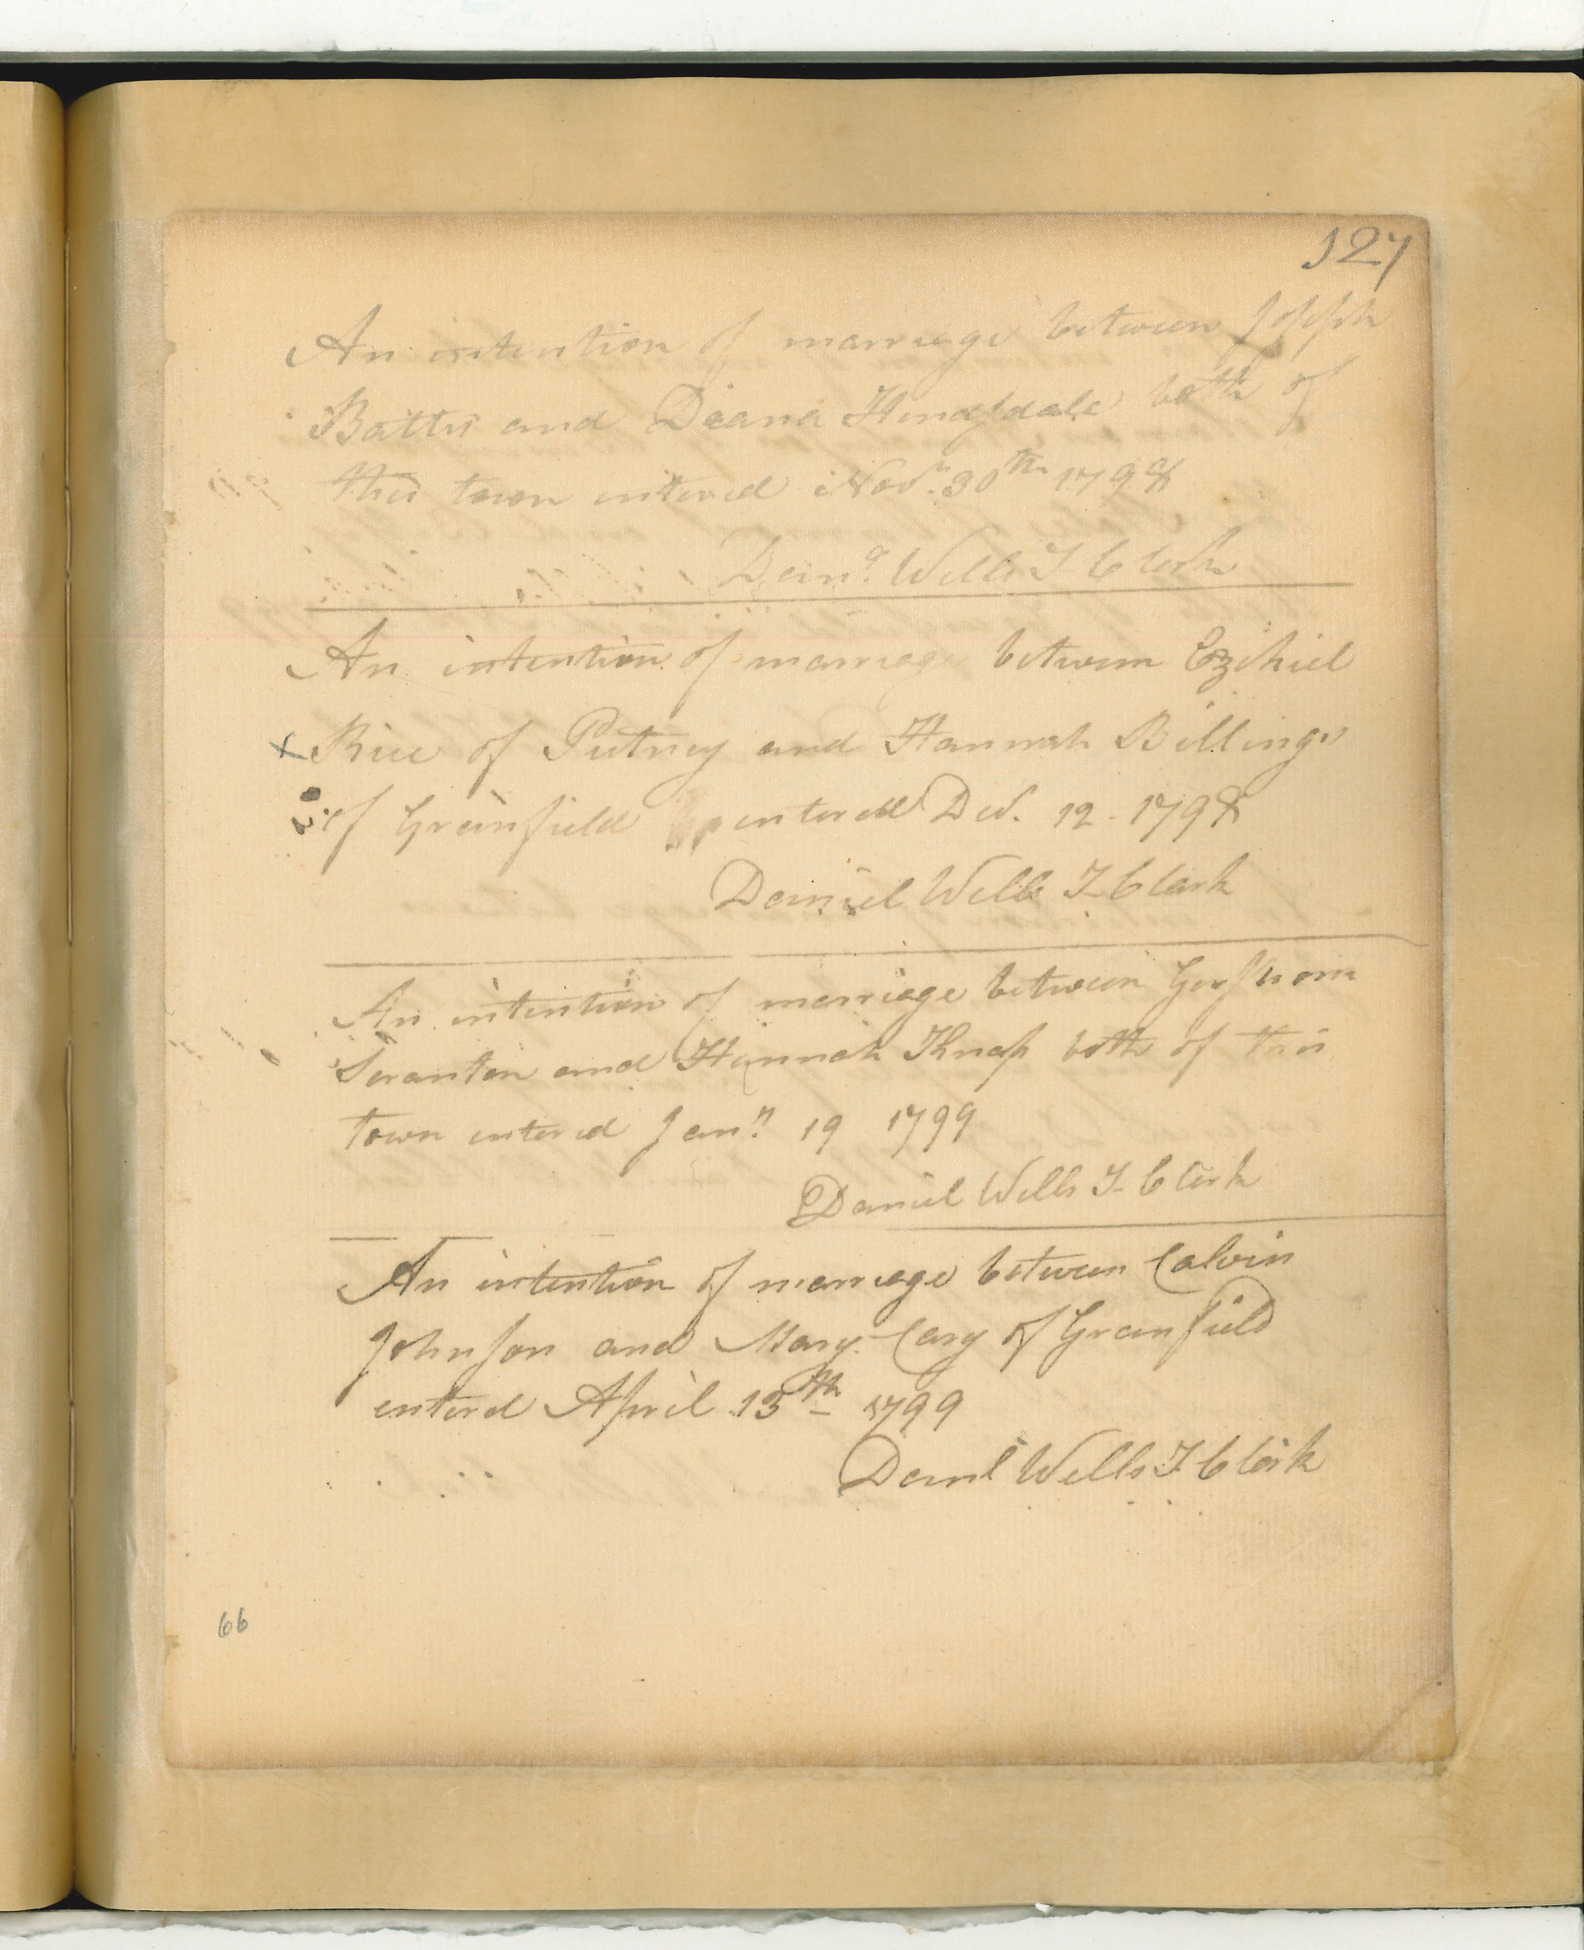 127
An intention of marriage between Joseph
Battis and Diana Hinsdale both of
this town entered Novr. 30th 1798
Danl. Wells T Clerk
An intention of marriage between Ezekiel
x Rice of Putney and Hannah Billings
of Greenfield entered Dec. 12 - 1798
Daniel Wells T Clark
An intention of marriage between Gershom
Scranton and Hannah Knap both of this
town entered Jany. 19 1799
Daniel Wells T- Clerk
An intention of marriage between Calvin
Johnson and Mary Cary of Greenfield
enterd April 13th 1799
Danl Wells T Clerk
66